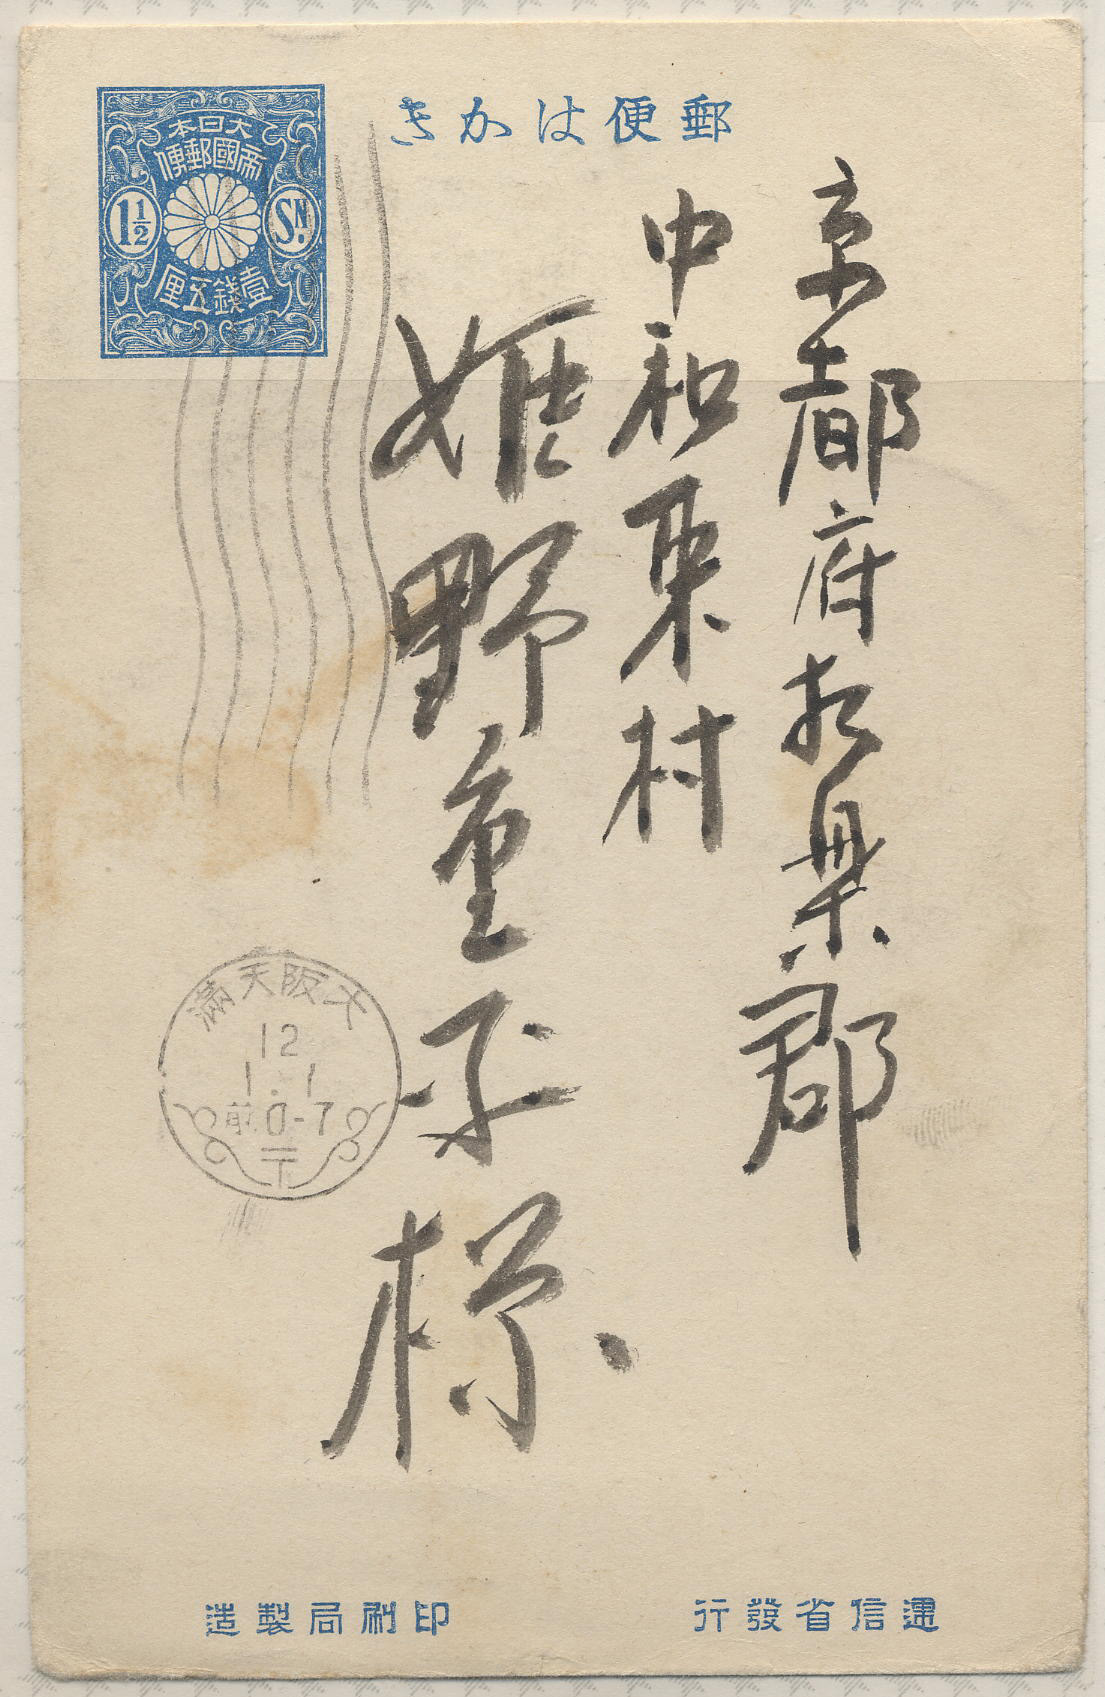 郵便はかき
大日本
帝國郵便
1½
SN.
壹錢五厘
京都府相楽郡
中和束村
姫野重子様
大阪天満
12
1.1
前0-7
〒
逓信省發行
印刷局製造